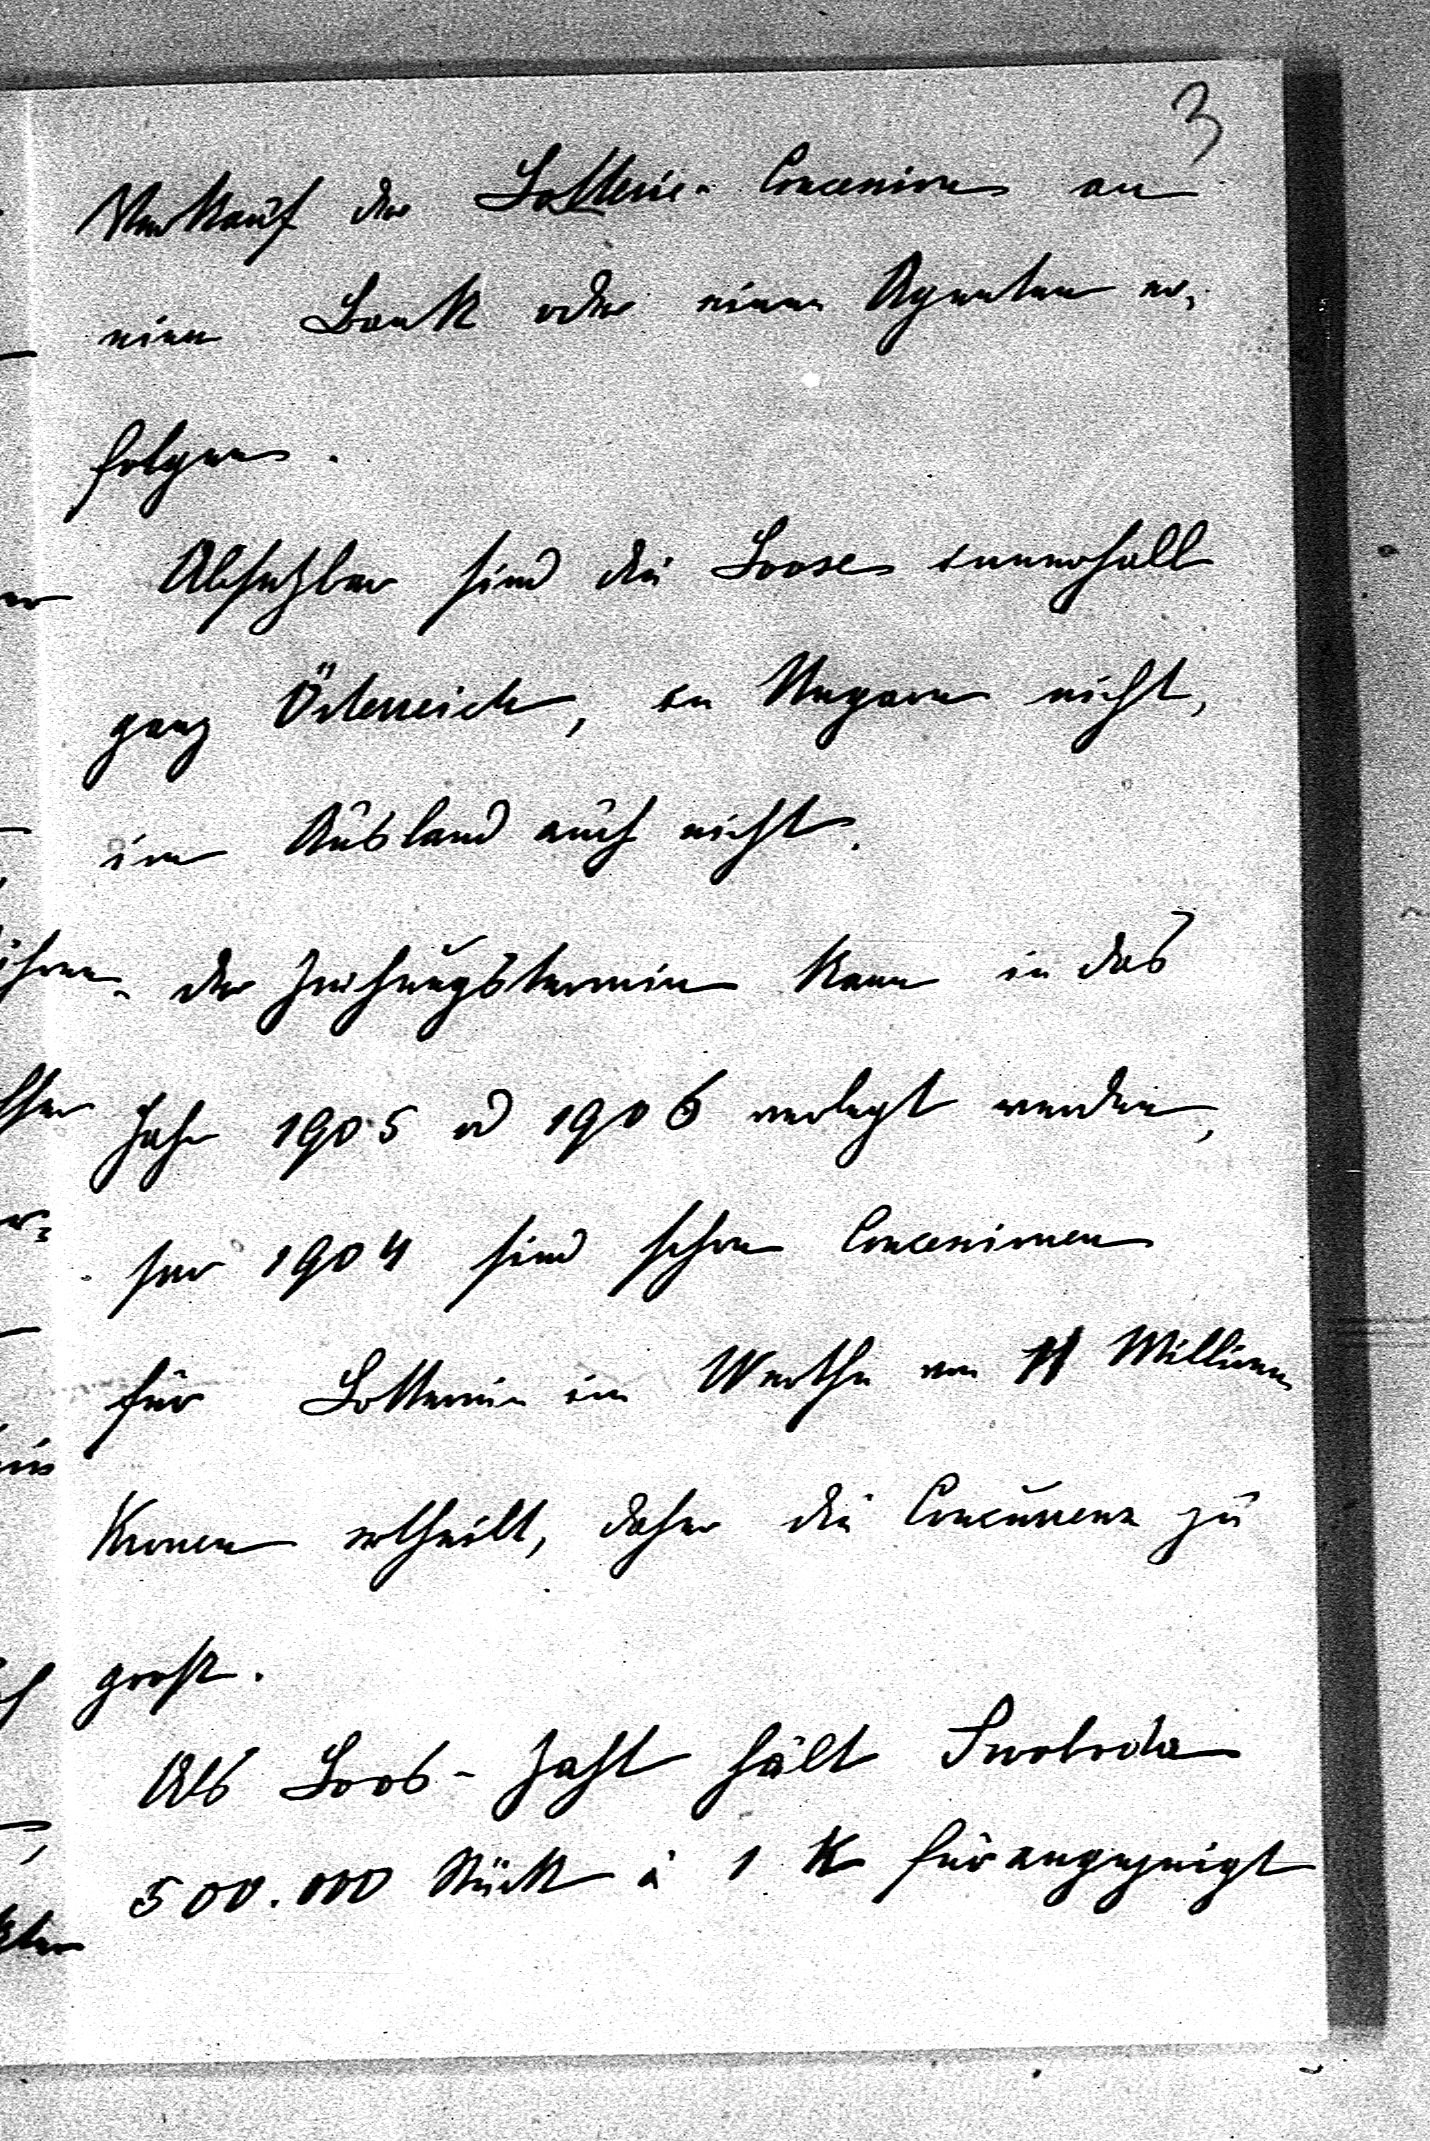 3
Verkauf der Lotterie-Concession an
eine Bank oder einen Agenten er-
folgen.
Absetzbar sind die Loose innerhalb
ganz Österreich, in Ungarn nicht,
im Ausland auch nicht.
der Ziehungstermin kann in das
Jahr 1905 od 1906 verlegt werden,
per 1904 sind schon Concessionen
für Lotterien im Werthe von 11 Millionen
Kronen ertheilt, daher die Concurrenz zu
groß.
Als Loos-Zahl hält Swoboda
500.000 Stück à 1 K für angezeigt